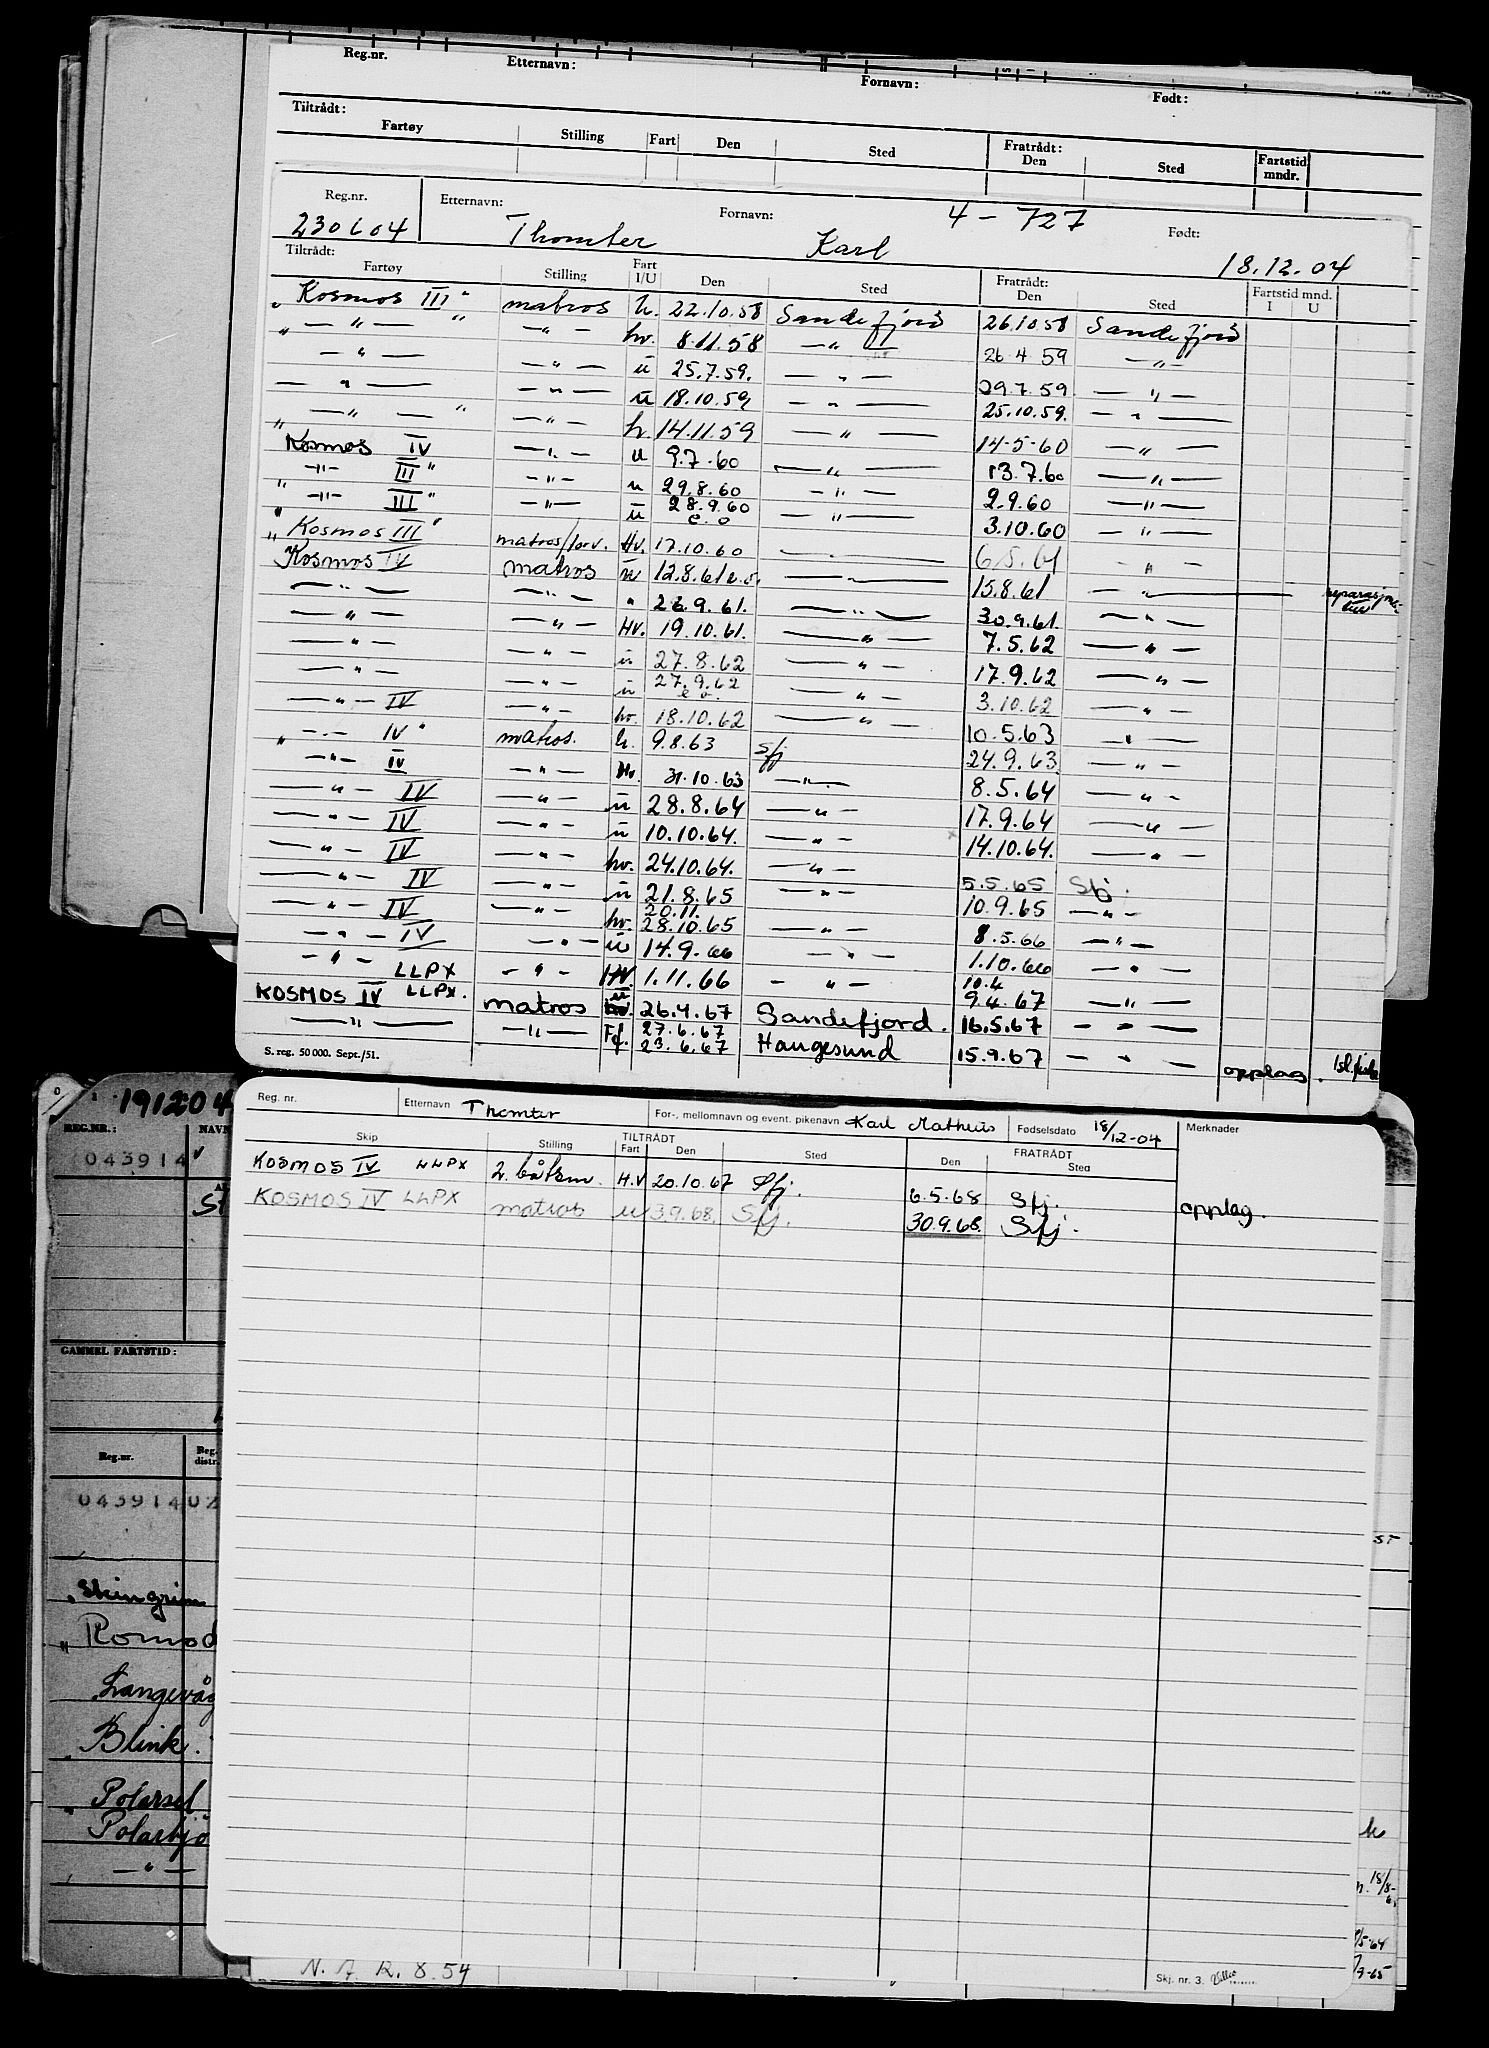 Reg.nr. Etternavn: Fornavn: Født:
Tiltrådt: Fartøy Stilling Fart Den Sted Fratrådt: Den Sted Fartstid mndr.
Reg.nr. Etternavn: Fornavn: 4 - 727 Født:
230604 Thomter Karl 18.12.04
Tiltrådt: Fartøy Stilling Fart I/U Den Sted Fratrådt: Den Sted Fartstid mnd. I U
"Kosmos III" matros h. 22.10.58 Sandefjord 26.10.58 Sandefjord
" — " — " — " — hv. 8.11.58 — " — 26 4 59 — " —
— " — — " — u 25.7.59. — " — 29.7.59 — " —
— " — — " — u 18.10.59 — " — 25.10.59. — " —
" — " — " — " — h. 14.11.59 — " — 14-5-60 — " —
Kosmos IV — " — u 9.7.60 — " — 13.7.60 — " —
" — " — III" — " — u 29.8.60 — " — 2.9.60 — " —
" — " — III" — " — u 28.9.60 e.o — " — 3.10.60 — " —
"Kosmos III" matros/torv. Hv. 17.10.60 — " — 6.5.61 — " —
Kosmos IV matros u 12.8.61 e.o. — " — 15.8.61 — " — reparasjons-
— " — — " — " 26.9.61. — " — 30.9.61. — " —
— " — — " — Hv. 19.10.61. — " — 7.5.62 — " —
— " — — " — u 27.8.62 — " — 17.9.62 — " —
— " — — " — u 27.9.62 e o. — " — 3.10.62 — " —
— " — IV — " — hv. 18.10.62 — " — 10.5.63 — " —
" — " — IV" matros. h. 9.8.63 Sfj 24.9.63. — " —
— " — IV — " — Hv. 31.10.63 — " — 8.5.64 — " —
— " — IV — " — u 28.8.64 — " — 17.9.64 — " —
— " — IV — " — u 10.10.64. — " — 14.10.64. — " —
— " — IV — " — hv. 24.10.64. — " — 5.5.65 Sfj.
— " — IV — " — u 21.8.65 — " — 10.9.65 — " —
— " — IV — " — hv. 20.11. 28.10.65 — " — 8.5.66 — " —
— " — IV — " — u 14.9.66 — " — 1.10.66 — " —
— " — LLPX — " — HV. 1.11.66 — " — 10.4 9.4.67 — " —
KOSMOS IV LLPX. matros u 26.4.67 Sandefjord. 16.5.67 — " —
— " — — " — Ff. 27.6.67 23.6.67 Haugesund 15.9.67 — " — opplag.
S. reg. 50 000. Sept./51.
191204
REG.NR.: NAVN
043914
GAMMEL FARTSTID:
Reg.nr. Reg. distr.
043914 02
Skingrim
"Romsd
Langevåg
Blink.
Polarsel
Polarbjø
— " —
Reg. nr. Etternavn Thomter For-, mellomnavn og event. pikenavn Karl Matheus Fødselsdato 18/12-04 Merknader
Skip Stilling TILTRÅDT Fart Den Sted FRATRÅDT Den Sted
KOSMOS IV LLPX 2. båtsm. H.V 20.10.67 Sfj. 6.5.68 Sfj. opplag.
KOSMOS IV LLPX matros u 3.9.68. Sfj. 30.9.68. Sfj.
ST
18/8-
/5-64
/9-65
Skj. nr. 3.
N. A R. 8.54